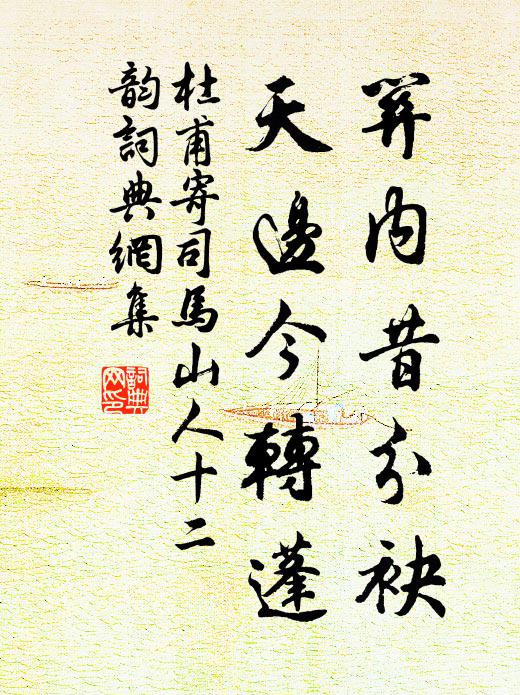 關內昔分袂
天邊今轉蓬
杜甫寄司馬山人十二
韵詞典網集
詞典
网印